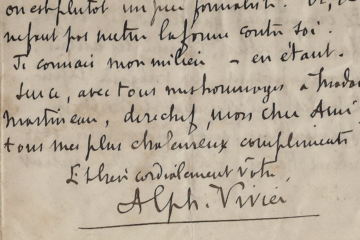 on est plutôt un peu formaliste.
ne faut pas mettre la forme contre soi.
Je connais mon milieu — en étant.
Sur ce, avec tous mes hommages à Madame
Martineau, derechef, mon cher Ami
tous mes plus chaleureux compliments
Et bien cordialement vôtre,
Alph. Vivier